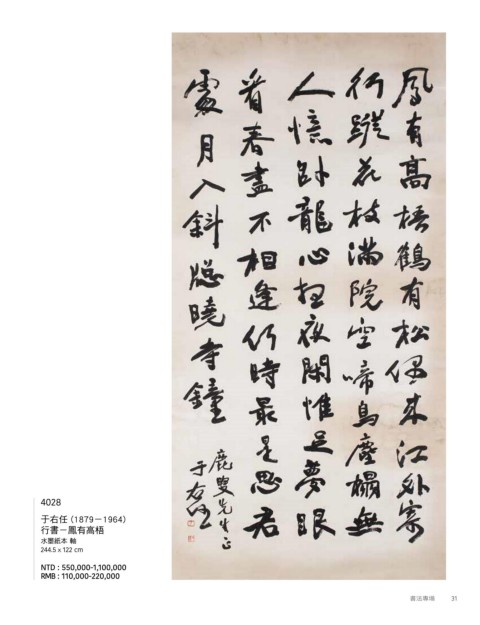 鳳有高梧鶴有松偶來江外寄
行蹤花枝滿院空啼鳥塵榻無
人憶卧龍心夜閑惟足夢眼
看春盡不相逢何時最是思君
處月入斜窗曉寺鐘
鹿叟先生正
于右任
4028
于右任（1879－1964）
行書－鳳有高梧
水墨紙本 軸
244.5 x 122 cm
NTD : 550,000-1,100,000
RMB : 110,000-220,000
書法專場 31